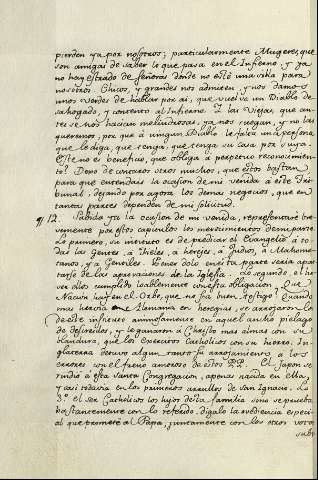 pierden ya por nosotros; particularmente Mugeres, que
son amigas de saber lo que pasa en el Infierno, y ya
no hay estrado de señoras donde no esté una silla para
nosotros. Chicos, y grandes nos admiten, y nos damos
unos verdes de hablar por ai, que vuelve un Diablo de
sahogado, y contento al Infierno. Y las Viejas, que an
tes se nos hacian melindrosas, ya nos ruegan, y no las
queremos, por que à ningun Diablo le falta una persona
que le diga, que venga, que tenga su casa por suya.
Este no es beneficio, que obliga à perpetuo reconocimien
to? Dexo de contaros otros muchos, que estos bastan
para que entendais la ocasion de mi venida à este Tri
bunal, dejando por agora los demas negocios, que en
tantas partes dependen de mi solicitud.
12. Sabida ya la ocasion de mi venida, representaré bre
vemente por estos capitulos los merecimientos de mi parte.
Lo primero, su intento es de predicar el Evangelio à to
das las Gentes, à Fieles, à hereges, à Judios, à Mahome
tanos, y à Gentiles. Poner dolo en esta parte seria apar
tarse de las aparaciones de la Iglesia. Lo segundo, el ha
ver ellos cumplido loablemente con esta obligacion, Que
Nacion hay en el Orbe, que no sea buen testigo? Quando
mas hervia Alemania en heregias, se arrojaron
de este infierno animosamente en aquel ancho pielago
de desdichas, y le ganaron à Christo mas almas con su
blandura, que los Exercitos Catholicos con su hierro. In
glaterra detuvo algun tanto su arrojamiento à los
errores con el freno amoroso de estos PP. El Japon se
rindió à esta Santa Congregacion, apenas nacida en ella,
y asi todavia en los primeros arrullos de San Ignacio. Lo
3º. el ser Catholicos los hijos de esta familia sino se prueba
bastantemente con lo referido, digalo la obediencia especi
al que prometen al Papa, juntamente con los otros votos
subs